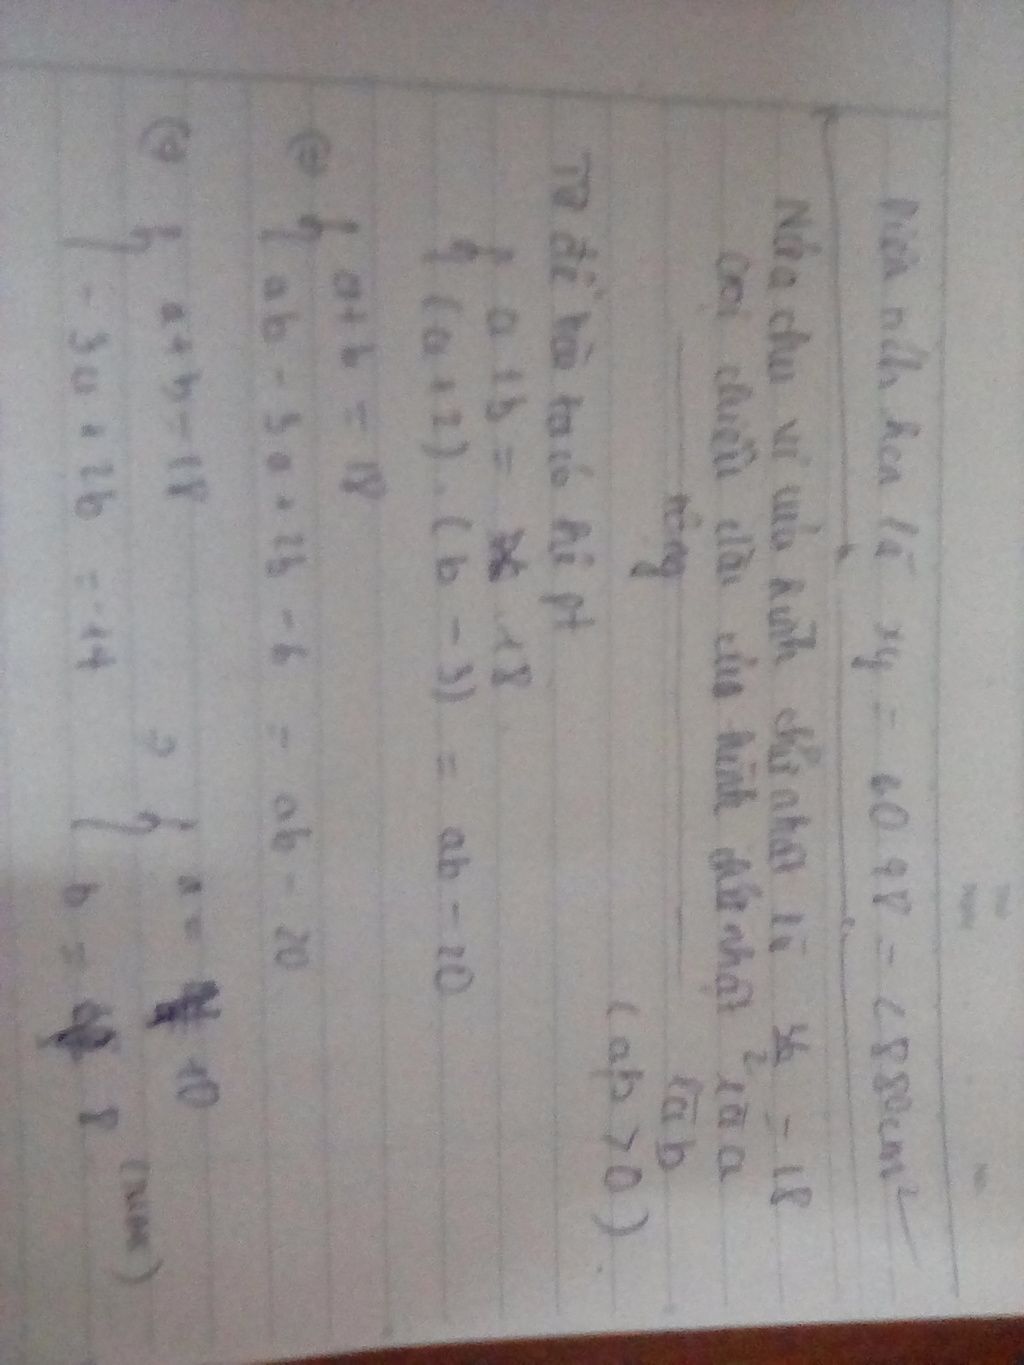 Diện tích hcn là xy = 60.48 = 2880cm²
Nửa chu vi của hình chữ nhật là 36/2 = 18
Gọi chiều dài của hình chữ nhật là a
rộng là b
(a,b > 0)
Từ đề bài ta có hệ pt
{ a + b = 18
(a + 2).(b - 3) = ab - 20
⇔ { a + b = 18
ab - 3a + 2b - 6 = ab - 20
⇔ { a + b = 18
- 3a + 2b = -14
⇒ { a = 10
b = 8
(TMĐK)